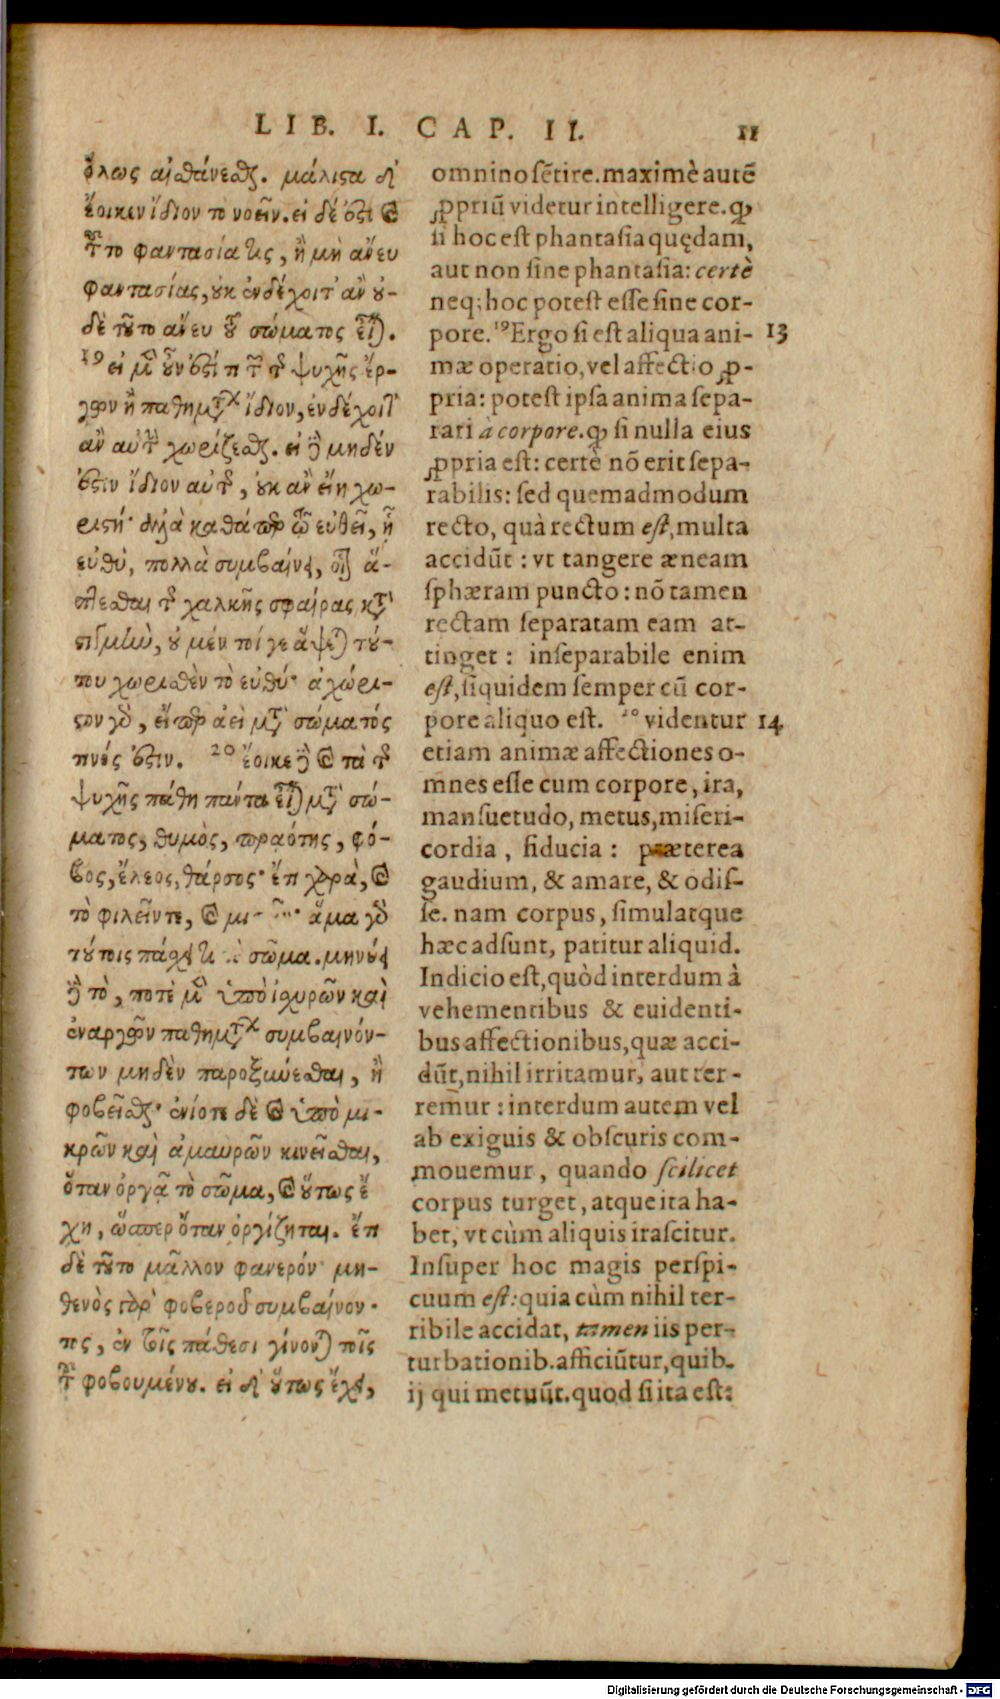 LIB. I. CAP. II. 11
ὅλως αἰσθάνεσθαι. μάλιστα δ'
ἔοικεν ἴδιον τὸ νοεῖν. εἰ δέ ἐστι καὶ
τοῦτο φαντασία τις, ἢ μὴ ἄνευ
φαντασίας, οὐκ ἐνδέχοιτ' ἂν οὐ-
δὲ τοῦτο ἄνευ τοῦ σώματος εἶναι.
19 εἰ μὲν οὖν ἐστί τι τῶν τῆς ψυχῆς ἔρ-
γων ἢ παθημάτων ἴδιον, ἐνδέχοιτ'
ἂν αὐτὴν χωρίζεσθαι. εἰ δὲ μηδέν
ἐστιν ἴδιον αὐτῆς, οὐκ ἂν εἴη χω-
ριστή· ἀλλὰ καθάπερ τῷ εὐθεῖ, ᾗ
εὐθύ, πολλὰ συμβαίνει, οἷον ἅ-
πτεσθαι τῆς χαλκῆς σφαίρας κατὰ
στιγμὴν, οὐ μέν τοί γε ἅψεται τού-
του χωρισθὲν τὸ εὐθύ· ἀχώρι-
στον γὰρ, εἴπερ ἀεὶ μετὰ σώματός
τινός ἐστιν. 20 ἔοικε δὲ καὶ τὰ τῆς
ψυχῆς πάθη πάντα εἶναι μετὰ σώ-
ματος, θυμὸς, πραότης, φό-
βος, ἔλεος, θάρσος· ἔτι χαρὰ, καὶ
τὸ φιλεῖν τε, καὶ ἅμα γὰρ
τούτοις πάσχει τι σῶμα. μηνύει
δὲ τὸ, ποτὲ μὲν ὑπὸ ἰσχυρῶν καὶ
ἐναργῶν παθημάτων συμβαινόν-
των μηδὲν παροξύνεσθαι, ἢ
φοβεῖσθαι· ἐνίοτε δὲ καὶ ὑπὸ μι-
κρῶν καὶ ἀμαυρῶν κινεῖσθαι,
ὅταν ὀργᾷ τὸ σῶμα, καὶ οὕτως ἔ-
χῃ, ὥσπερ ὅταν ὀργίζηται. ἔτι
δὲ τοῦτο μᾶλλον φανερόν· μη-
θενὸς γὰρ φοβεροῦ συμβαίνον-
τος, ἐν τοῖς πάθεσι γίνονται τοῖς
τοῦ φοβουμένου. εἰ δ' οὕτως ἔχει,
omnino sẽtire. maximè autẽ
ꝓpriũ videtur intelligere. ꝙ
si hoc est phantasia quędam,
aut non sine phantasia: certè
neq; hoc potest esse sine cor-
pore. 19 Ergo si est aliqua ani- 13
mæ operatio, vel affectio ꝓ-
pria: potest ipsa anima sepa-
rari a corpore. ꝙ si nulla eius
ꝓpria est: certè nõ erit sepa-
rabilis: sed quemadmodum
recto, quà rectum est, multa
accidũt: vt tangere æneam
sphæram puncto: nõ tamen
rectam separatam eam at-
tinget: inseparabile enim
est, siquidem semper cũ cor-
pore aliquo est. 20 videntur 14
etiam animæ affectiones o-
mnes esse cum corpore, ira,
mansuetudo, metus, miseri-
cordia, fiducia: præterea
gaudium, & amare, & odis-
se. nam corpus, simulatque
hæc adsunt, patitur aliquid.
Indicio est, quòd interdum à
vehementibus & euidenti-
bus affectionibus, quæ acci-
dũt, nihil irritamur, aut ter-
remur: interdum autem vel
ab exiguis & obscuris com-
mouemur, quando scilicet
corpus turget, atque ita ha-
bet, vt cùm aliquis irascitur.
Insuper hoc magis perspi-
cuum est: quia cùm nihil ter-
ribile accidat, tamen iis per-
turbationib. afficiũtur, quib.
ij qui metuũt. quod si ita est:
Digitalisierung gefördert durch die Deutsche Forschungsgemeinschaft - DFG